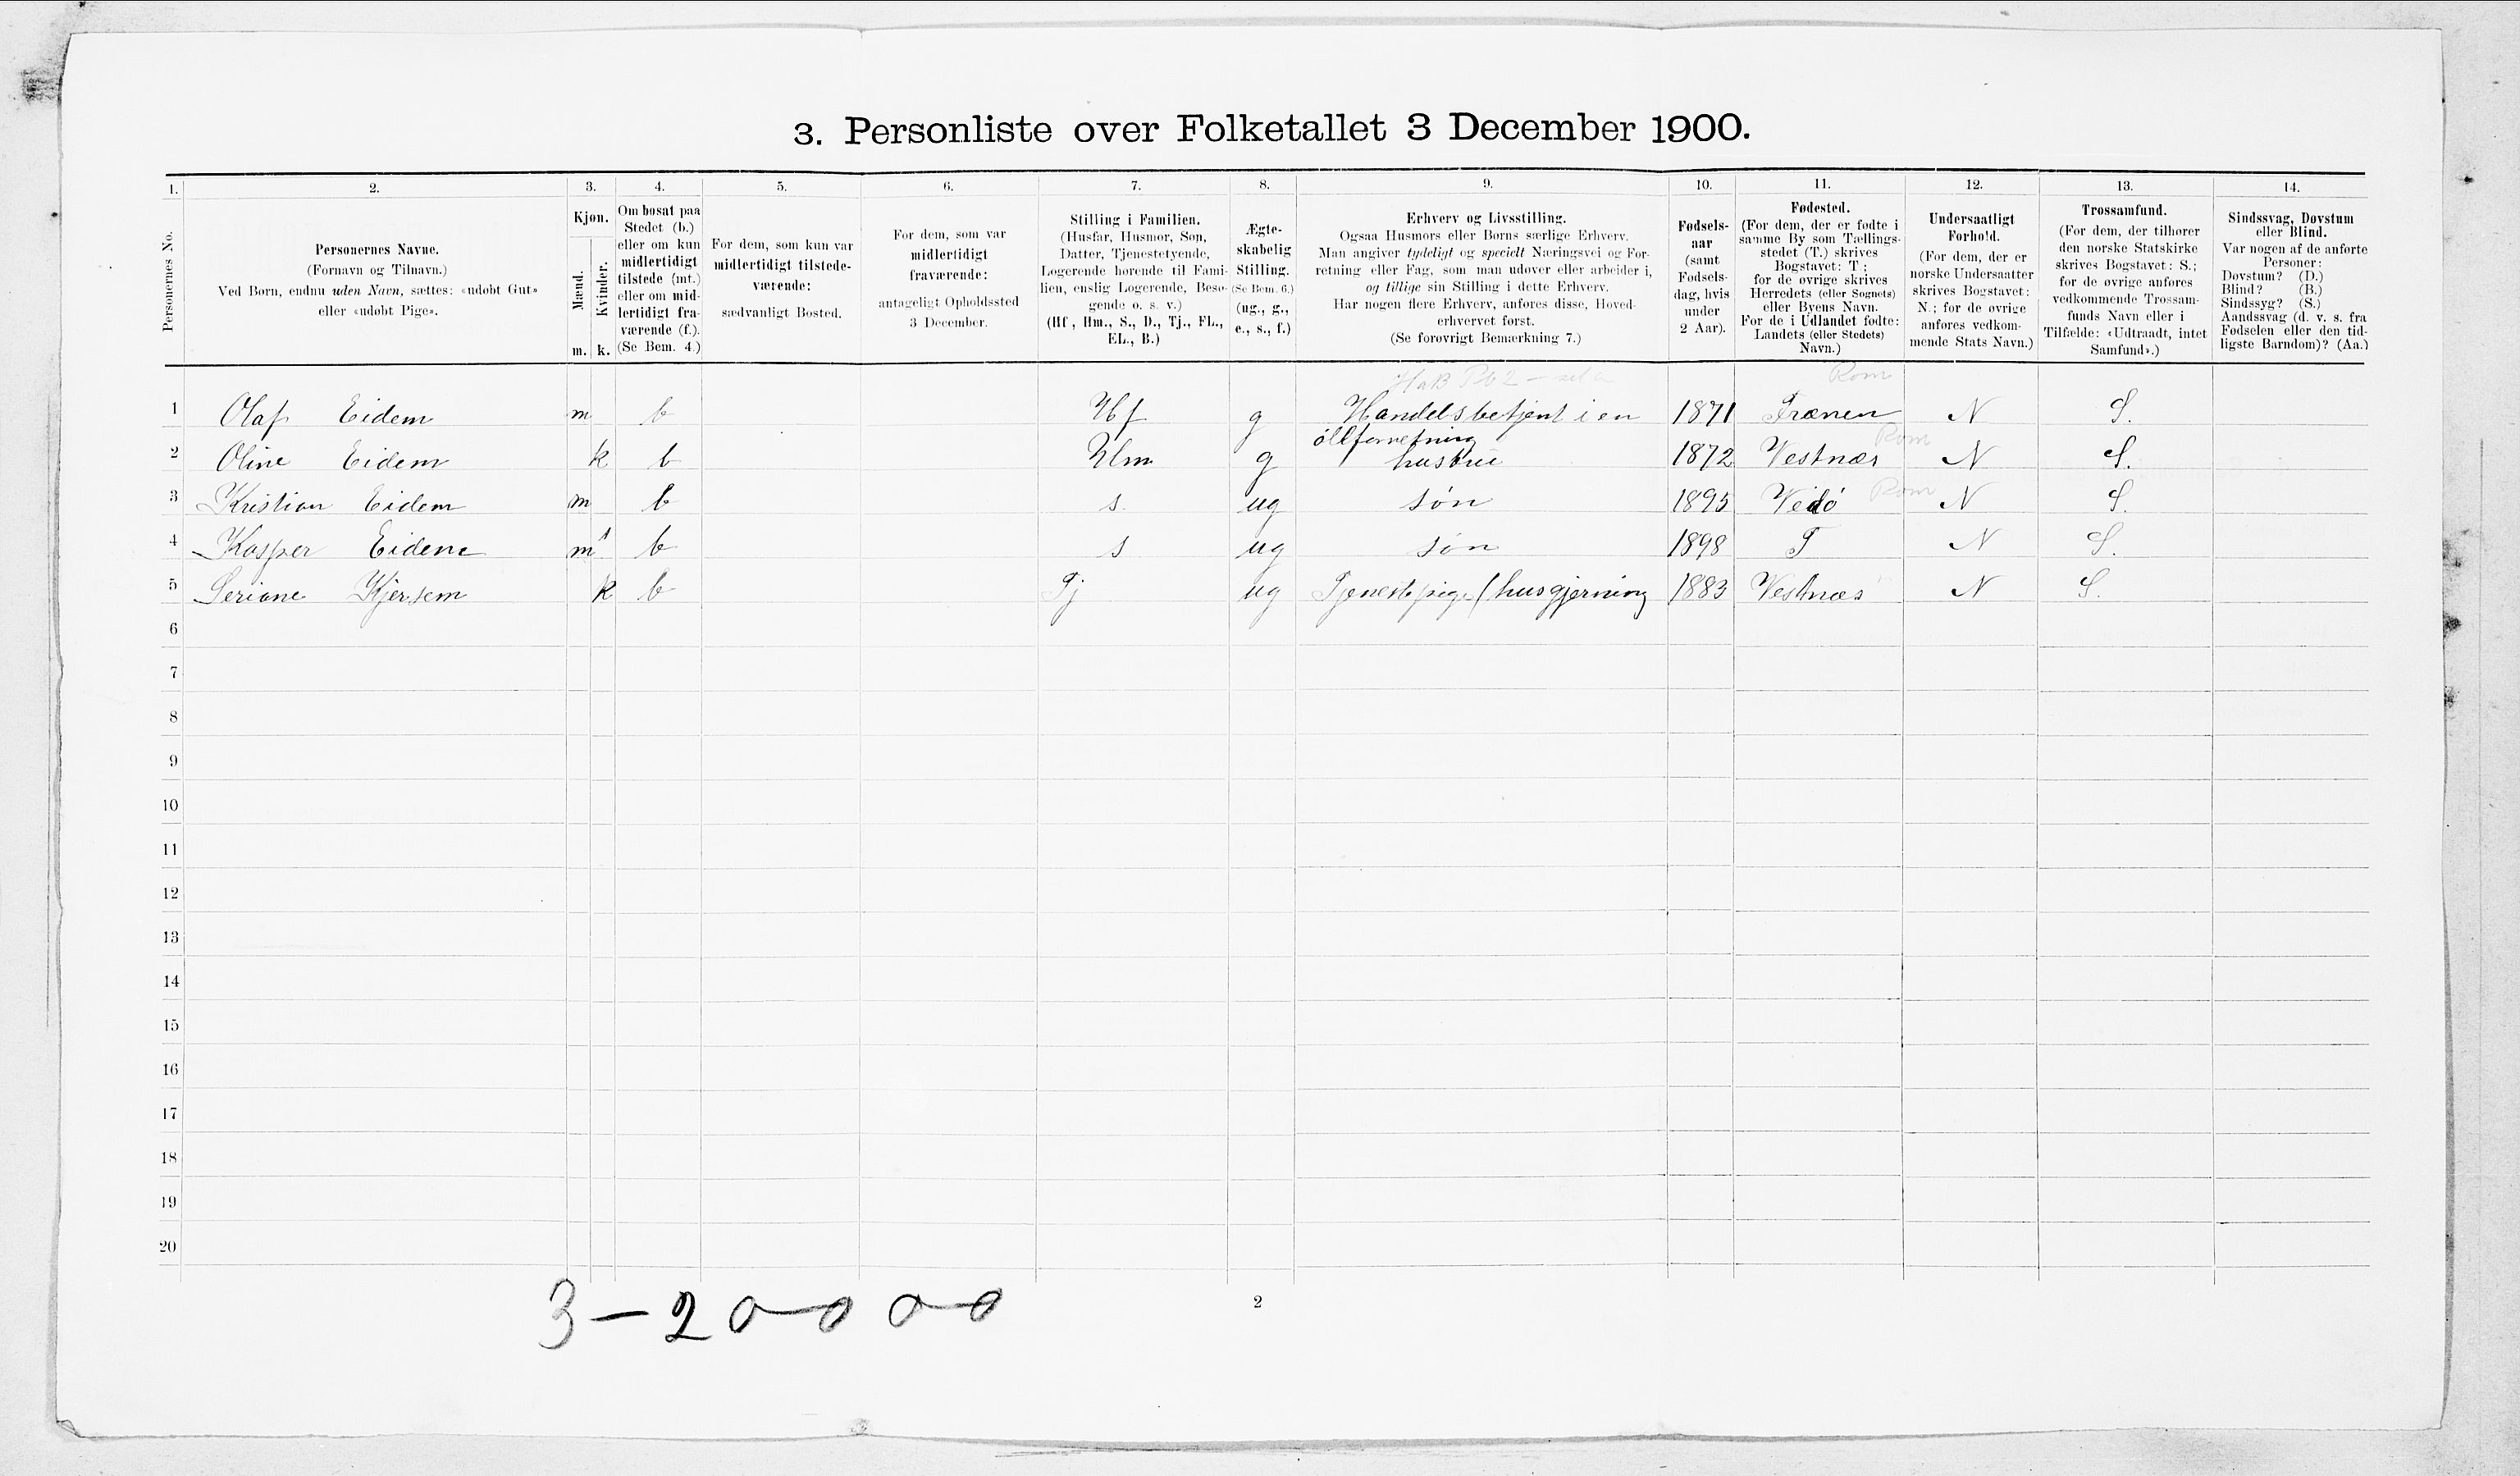 3. Personliste over Folketallet 3 December 1900.
1. 2. 3. 4. 5. 6. 7. 8. 9. 10. 11. 12. 13. 14.
Personernes No.
Personernes Navne.
(Fornavn og Tilnavn.)
Ved Børn, endnu uden Navn, sættes: «udøbt Gut»
eller «udøbt Pige».
Kjøn.
Mænd.
Kvinder.
m. k.
Om bosat paa
Stedet (b.)
eller om kun
midlertidigt
tilstede (mt.)
eller om mid-
lertidigt fra-
værende (f.).
(Se Bem. 4.)
For dem, som kun var
midlertidigt tilstede-
værende:
sædvanligt Bosted.
For dem, som var
midlertidigt
fraværende:
antageligt Opholdssted
3 December.
Stilling i Familien.
(Husfar, Husmor, Søn,
Datter, Tjenestetyende,
Logerende hørende til Fami-
lien, enslig Logerende, Besø-
gende o. s. v.)
(Hf, Hm., S., D., Tj., FL.,
EL., B.)
Ægte-
skabelig
Stilling.
(Se Bem. 6.)
(ug., g.,
e., s., f.)
Erhverv og Livsstilling.
Ogsaa Husmors eller Børns særlige Erhverv.
Man angiver tydeligt og specielt Næringsvei og For-
retning eller Fag, som man udøver eller arbeider i,
og tillige sin Stilling i dette Erhverv.
Har nogen flere Erhverv, anføres disse, Hoved-
erhvervet først.
(Se forøvrigt Bemærkning 7.)
Fødsels-
aar
(samt
Fødsels-
dag, hvis
under
2 Aar).
Fødested.
(For dem, der er fødte i
samme By som Tællings-
stedet (T.) skrives
Bogstavet: T.;
for de øvrige skrives
Herredets (eller Sognets)
eller Byens Navn.
For de i Udlandet fødte:
Landets (eller Stedets)
Navn.)
Undersaatligt
Forhold.
(For dem, der er
norske Undersaatter
skrives Bogstavet:
N.; for de øvrige
anføres vedkom-
mende Stats Navn.)
Trossamfund.
(For dem, der tilhører
den norske Statskirke
skrives Bogstavet: S.;
for de øvrige anføres
vedkommende Trossam-
funds Navn eller i
Tilfælde: «Udtraadt, intet
Samfund».)
Sindssvag, Døvstum
eller Blind.
Var nogen af de anførte
Personer:
Døvstum? (D.)
Blind? (B.)
Sindssyg? (S.)
Aandssvag (d. v. s. fra
Fødselen eller den tid-
ligste Barndom)? (Aa.)
Rom
1 Olaf Eidem m b Hf g Handelsbetjent i en 1871 Frænen N S.
Rom
2 Oline Eidem k b Hm g hustru 1872 Vestnæs N S.
Rom
3 Kristian Eidem m b s. ug søn 1895 Vedø N S.
4 Kasper Eidem m b s ug søn 1898 T N S.
5 Seriane Kjersem k b Tj ug Tjenestepige (husgjerning 1883 Vestnæs N S.
6
7
8
9
10
11
12
13
14
15
16
17
18
19
20
3-2 0-0 0-0
2